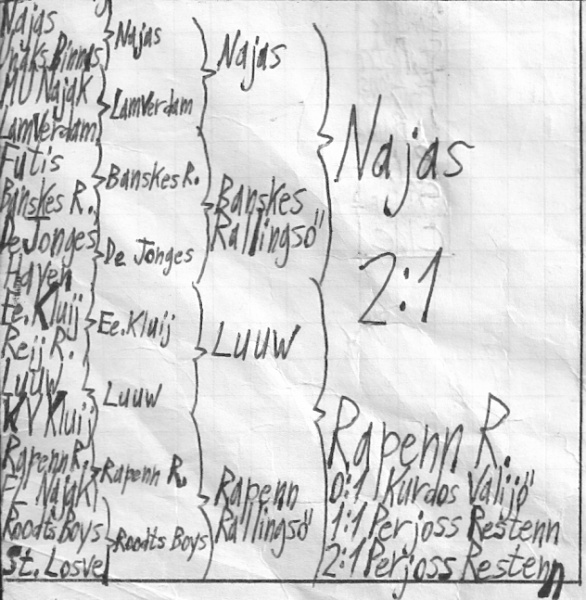 Najas
Binnis
MU Najak
LamVerdam
Futis
Banskes R.
De Jonges
Haven
Ee. Kluij
Reij R.
Luuw
KV Kluij
Rapenn R.
FL Najak
Roodts Boys
St. Losve
Najas
LamVerdam
Banskes R.
De Jonges
Ee. Kluij
Luuw
Rapenn R.
Roodts Boys
Najas
Banskes
Rallingsö
Luuw
Rapenn
Rallingsö
Najas
2:1
Rapenn R.
0:1 Kurdos Valijö
1:1 Perjoss Restenn
2:1 Perjoss Restenn